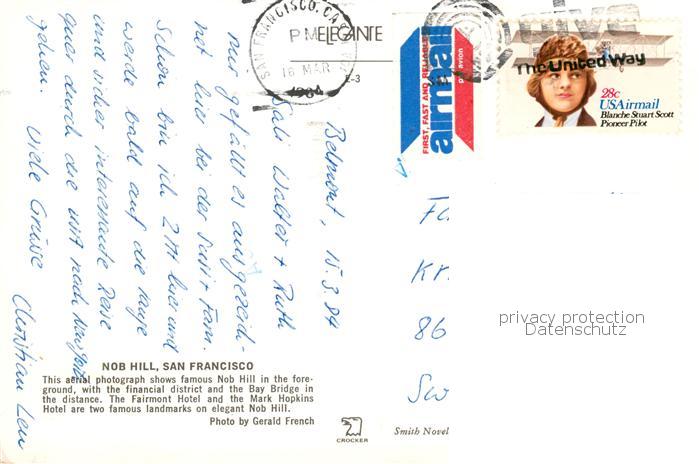 SAN FRANCISCO, CA
PM
16 MAR
1984
ELEGANTE
E-3
FIRST, FAST AND RELIABLE
airmail
par avion
The United Way
28c
USAirmail
Blanche Stuart Scott
Pioneer Pilot
Belmont, 15.3.84
Sali Walter + Ruth
Mir gefällt es ausgezeich-
net hier bei der Susi + Fam.
Schon bin ich 2 M hier und
werde bald auf die lange
und sicher interessante Reise
quer durch die USA nach New York
gehen. Viele Grüsse
Christian Leu
Fa
Kr
86
Sw
privacy protection
Datenschutz
NOB HILL, SAN FRANCISCO
This aerial photograph shows famous Nob Hill in the fore-
ground, with the financial district and the Bay Bridge in
the distance. The Fairmont Hotel and the Mark Hopkins
Hotel are two famous landmarks on elegant Nob Hill.
Photo by Gerald French
CROCKER
Smith Novel